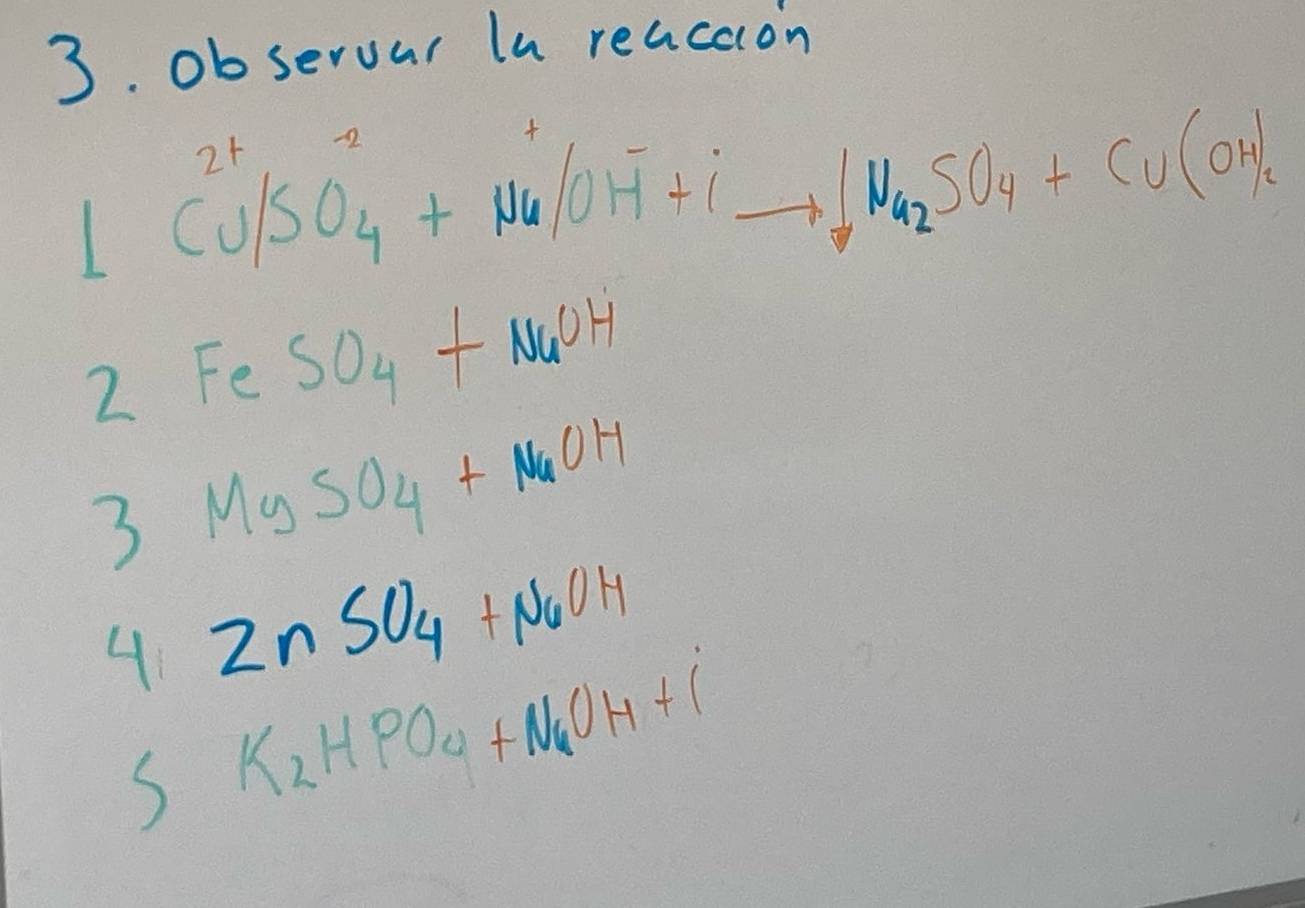 3. Observar la reacción
1 Cu²⁺/SO₄⁻² + Na⁺/OH⁻ + i → ↓ Na₂SO₄ + Cu(OH)₂
2 FeSO₄ + NaOH
3 MgSO₄ + NaOH
4. ZnSO₄ + NaOH
5 K₂HPO₄ + NaOH + i